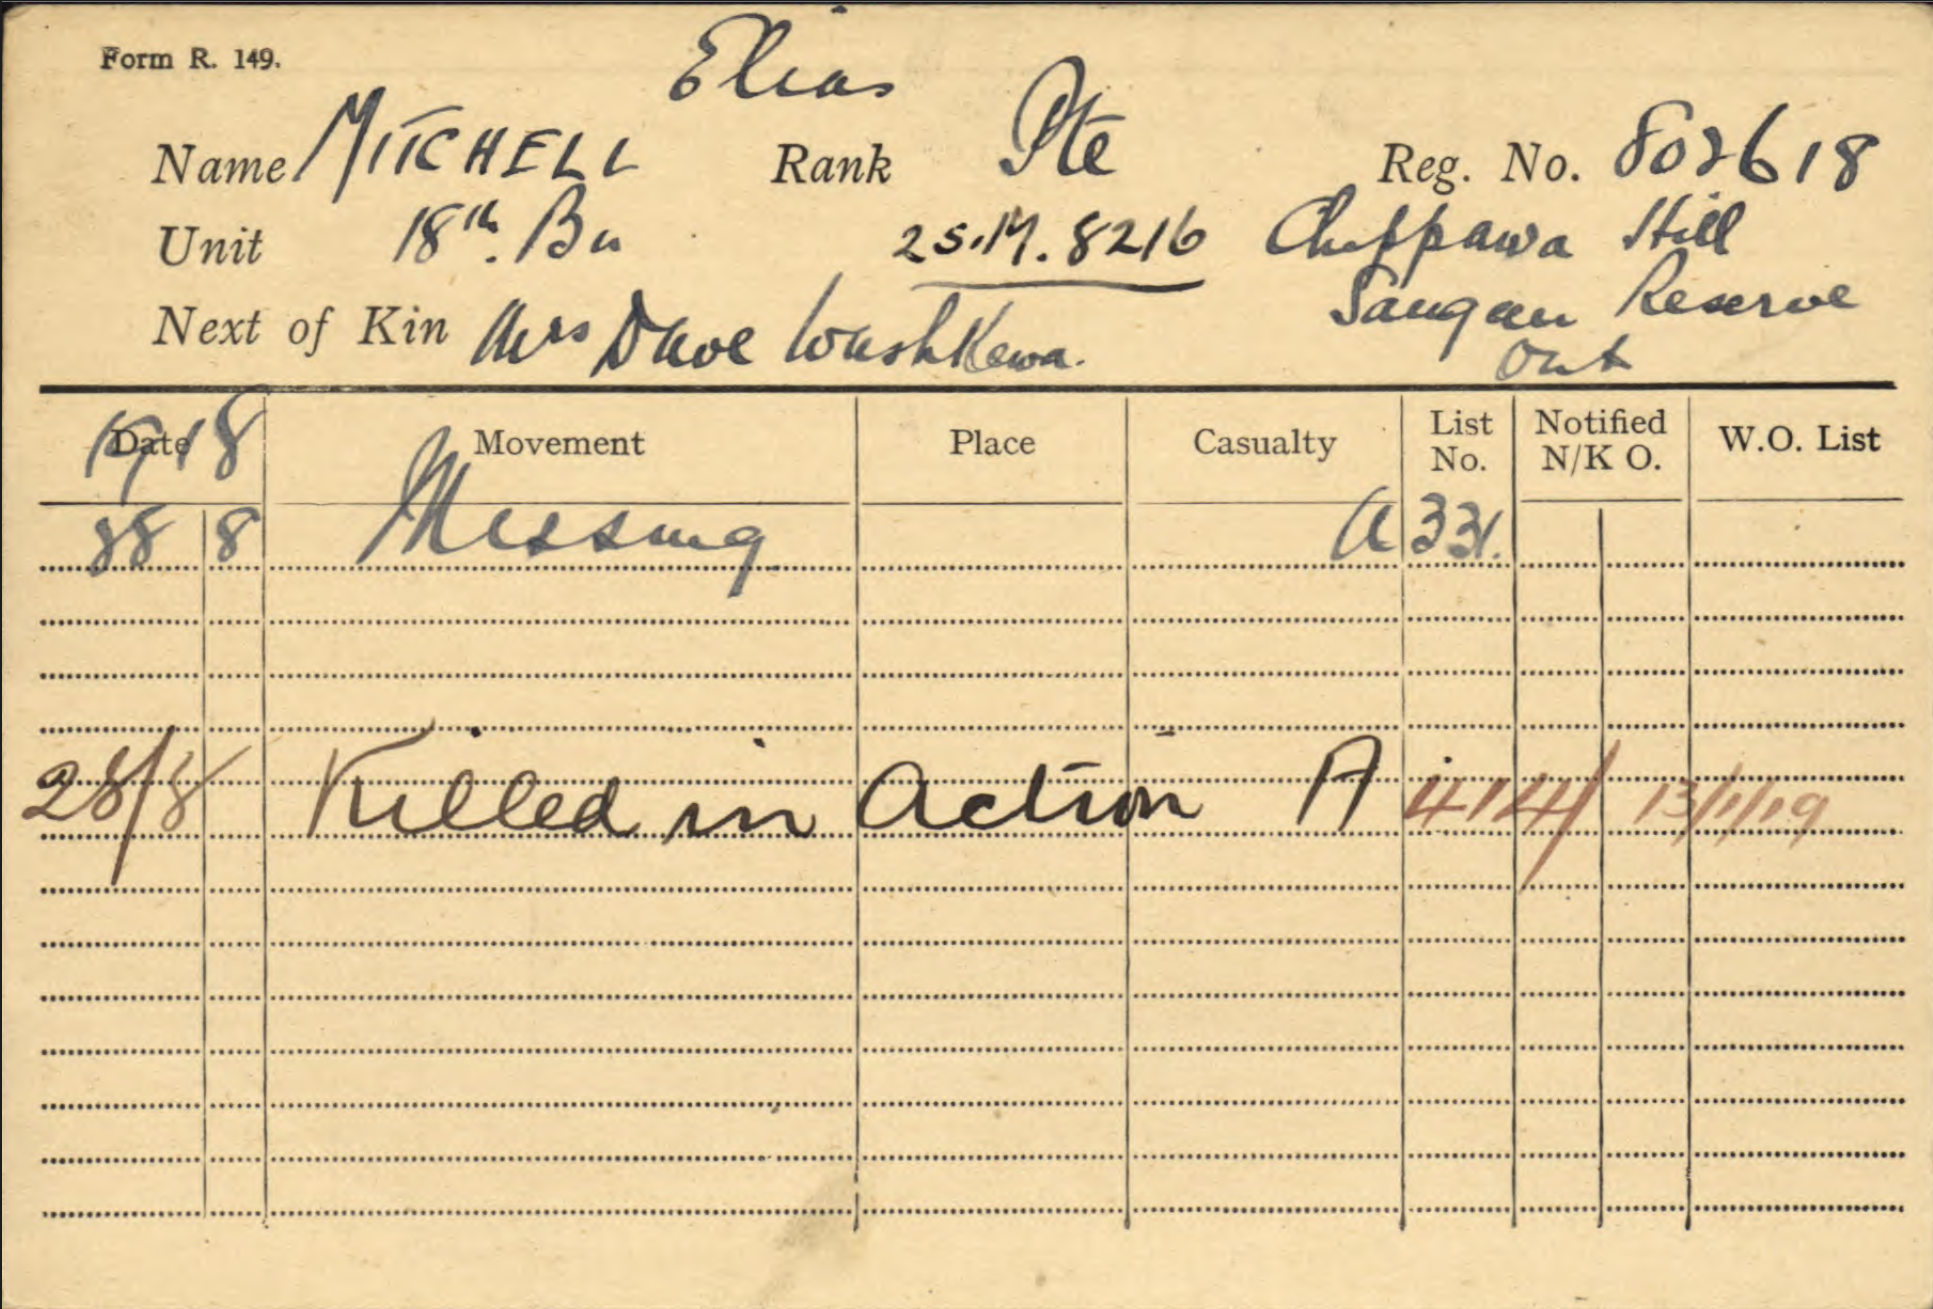 Form R. 149.
Elias
Name MITCHELL Rank Pte Reg. No. 802618
Unit 18th. Bn 25.M.8216 Chippawa Hill
Saugeen Reserve
Next of Kin Mrs Dave Washkewa.
Ont
1918
Date Movement Place Casualty List No. Notified N/K O. W.O. List
8 Missing A 331.
28/8 Killed in Action A 414 13/1/19